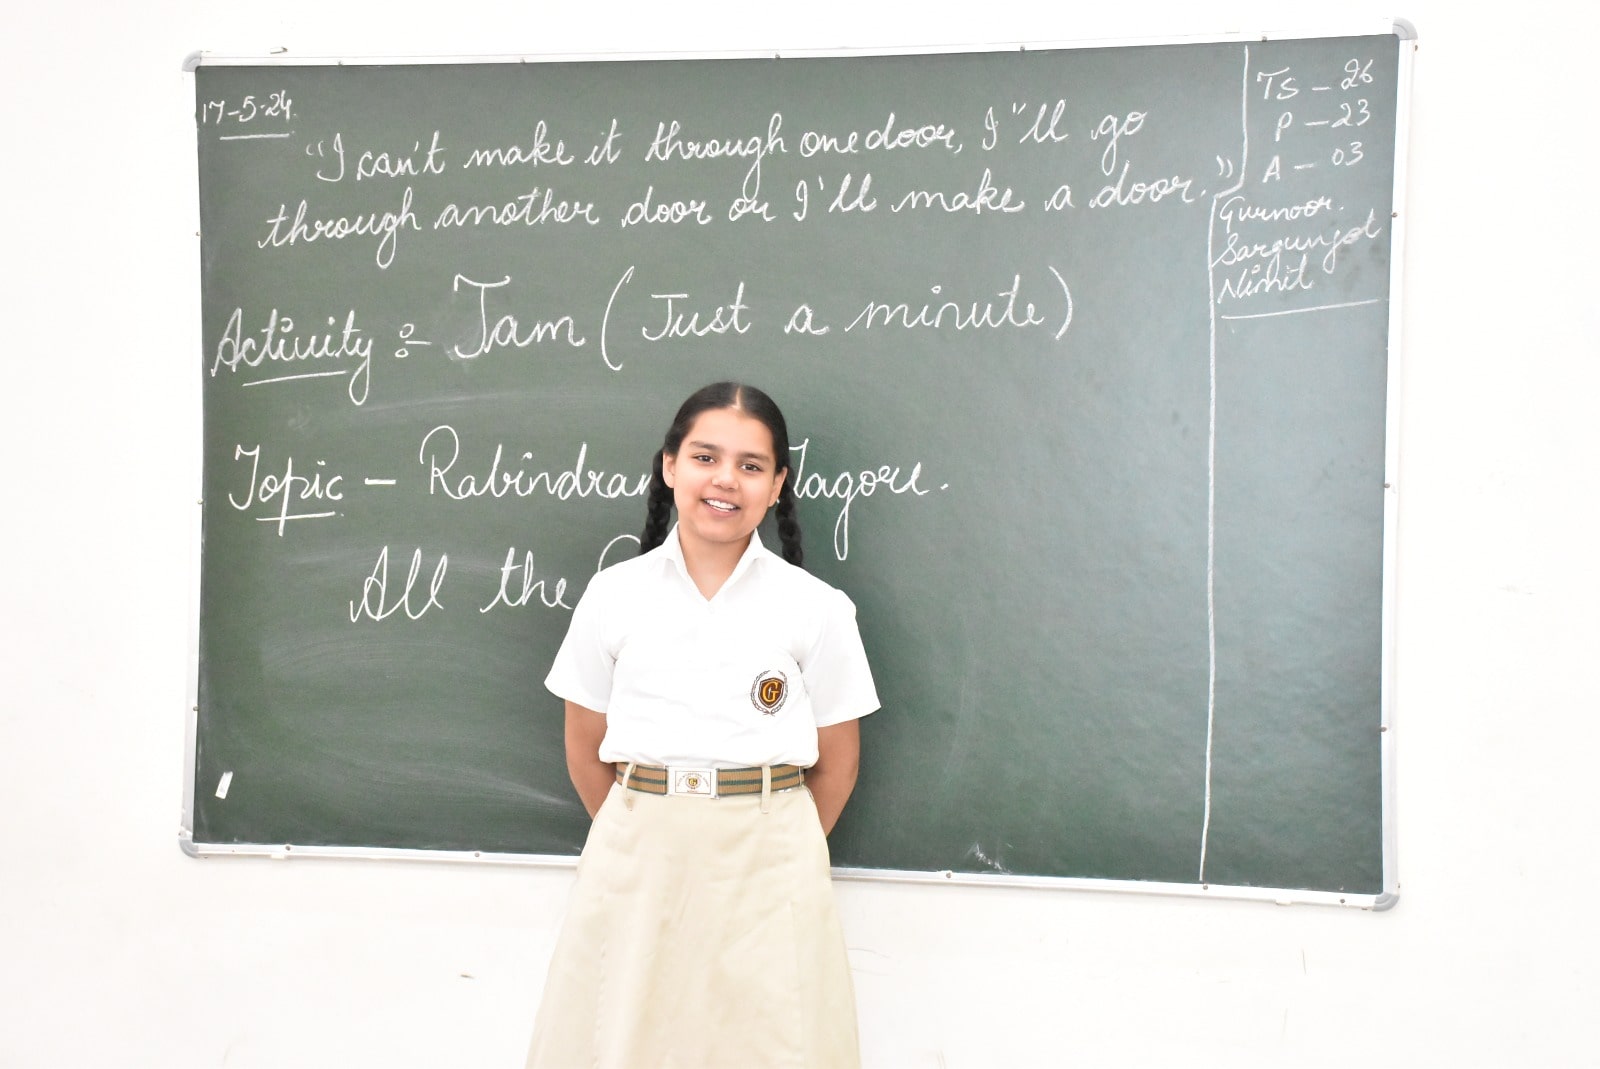 17-5-24
"I can't make it through one door, I"ll go
through another door or I'll make a door."
Activity :- Jam (Just a minute)
Topic - Rabindran Tagore.
All the
TS - 26
P - 23
A - 03
Gurnoor.
Sargunjot
Nimit
G